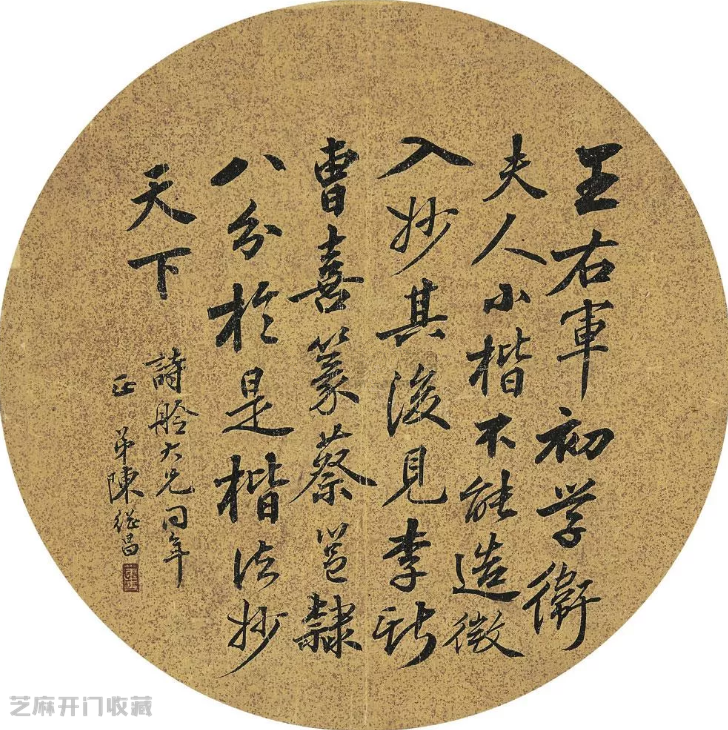 王右軍初学衛
夫人小楷不能造微
入妙其後見李斯
曹喜篆蔡邕隸
八分於是楷法妙
天下
詩舲大兄同年
正 弟陳繼昌
芝麻开门收藏